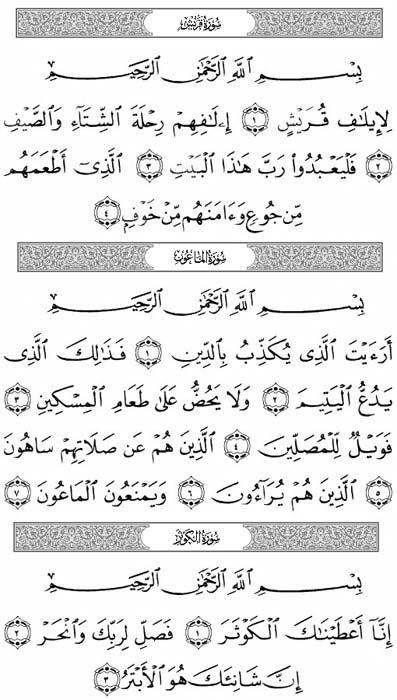 سُورَةُ قُرَيْشٍ
بِسْمِ ٱللَّهِ ٱلرَّحْمَٰنِ ٱلرَّحِيمِ
لِإِيلَٰفِ قُرَيْشٍ ١ إِۦلَٰفِهِمْ رِحْلَةَ ٱلشِّتَآءِ وَٱلصَّيْفِ
٢ فَلْيَعْبُدُوا۟ رَبَّ هَٰذَا ٱلْبَيْتِ ٣ ٱلَّذِىٓ أَطْعَمَهُم
مِّن جُوعٍ وَءَامَنَهُم مِّنْ خَوْفٍۭ ٤
سُورَةُ المَاعُونِ
بِسْمِ ٱللَّهِ ٱلرَّحْمَٰنِ ٱلرَّحِيمِ
أَرَءَيْتَ ٱلَّذِى يُكَذِّبُ بِٱلدِّينِ ١ فَذَٰلِكَ ٱلَّذِى
يَدُعُّ ٱلْيَتِيمَ ٢ وَلَا يَحُضُّ عَلَىٰ طَعَامِ ٱلْمِسْكِينِ ٣
فَوَيْلٌ لِّلْمُصَلِّينَ ٤ ٱلَّذِينَ هُمْ عَن صَلَاتِهِمْ سَاهُونَ
٥ ٱلَّذِينَ هُمْ يُرَآءُونَ ٦ وَيَمْنَعُونَ ٱلْمَاعُونَ ٧
سُورَةُ الكَوْثَرِ
بِسْمِ ٱللَّهِ ٱلرَّحْمَٰنِ ٱلرَّحِيمِ
إِنَّآ أَعْطَيْنَٰكَ ٱلْكَوْثَرَ ١ فَصَلِّ لِرَبِّكَ وَٱنْحَرْ ٢
إِنَّ شَانِئَكَ هُوَ ٱلْأَبْتَرُ ٣